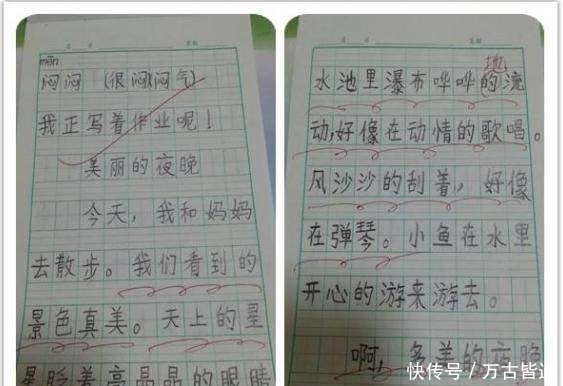 mēn
闷闷 (很闷闷气)
我正写着作业呢！
美丽的夜晚
今天，我和妈妈
去散步。我们看到的
景色真美。天上的星
星眨着亮晶晶的眼睛
地
水池里瀑布哗哗的流
动，好像在动情的歌唱。
风沙沙的刮着，好像
在弹琴。小鱼在水里
开心的游来游去。
啊，多美的夜晚
快传号／万古皆